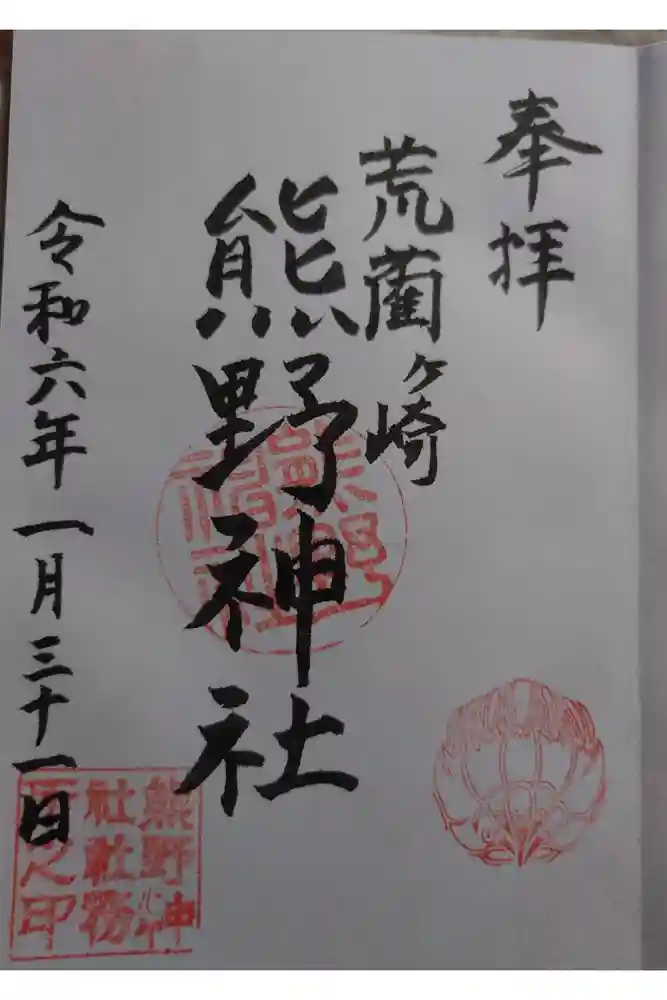 奉拝
荒藺ヶ崎
熊野神社
令和六年一月三十一日
熊野神
社社務
所之印